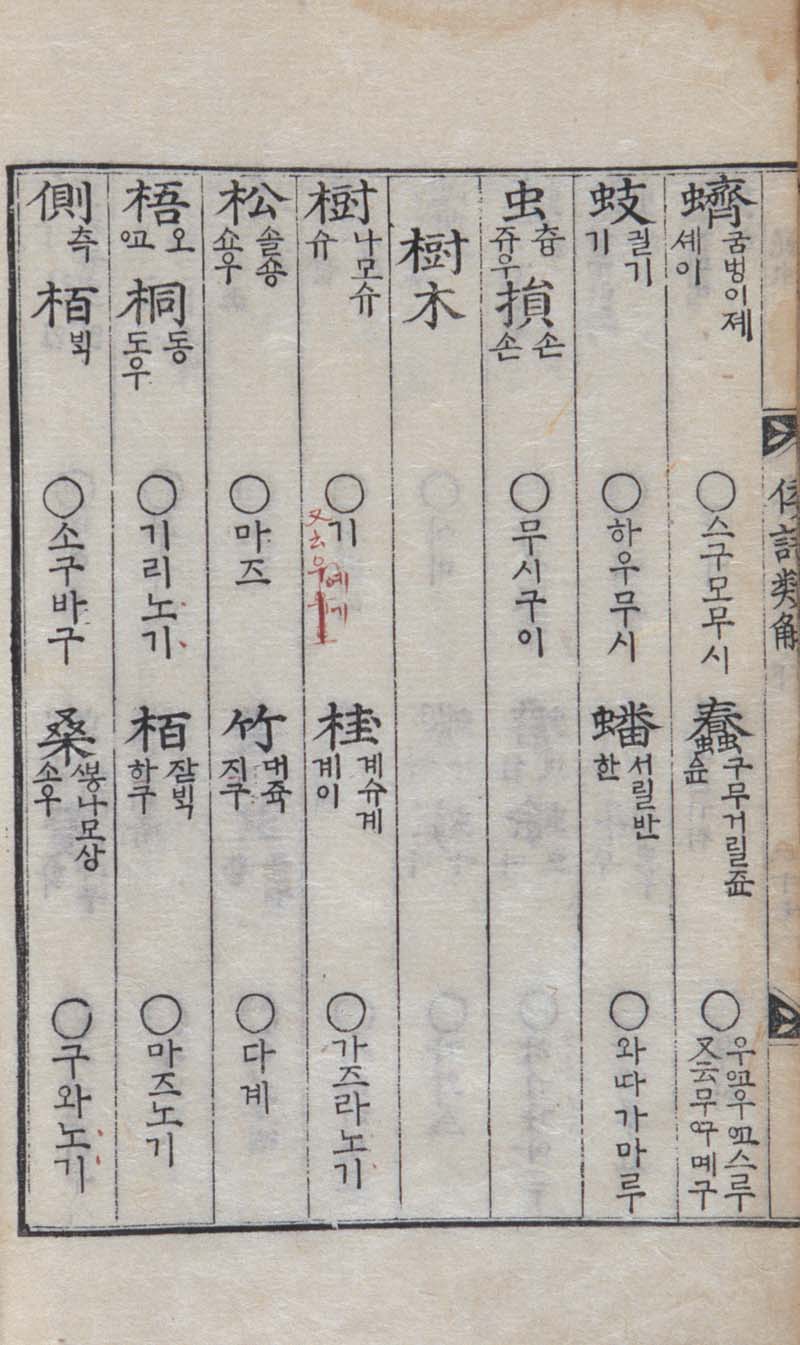 倭語類解
蠐 굼벙이졔 셰이 ○스구모무시
蠢 구무거릴쥰 슌 ○우ᅌᅭ우ᅌᅭ스루 又云무ᅌᅮ몌구
蚑 귈기 기 ○하우무시
蟠 서릴반 한 ○와따가마루
虫 츙 쥬우 損 손 손 ○무시구이
樹木
樹 나모슈 슈 ○기 又云우예기
桂 계슈계 계이 ○가즈라노기
松 솔숑 쇼우 ○마즈
竹 대쥭 지구 ○다계
梧 오 ᅌᅩ 桐 동 도우 ○기리노기
栢 잘ᄇᆡᆨ 하구 ○마즈노기
側 측 栢 ᄇᆡᆨ ○소구바구
桑 ᄲᅩᆼ나모상 소우 ○구와노기